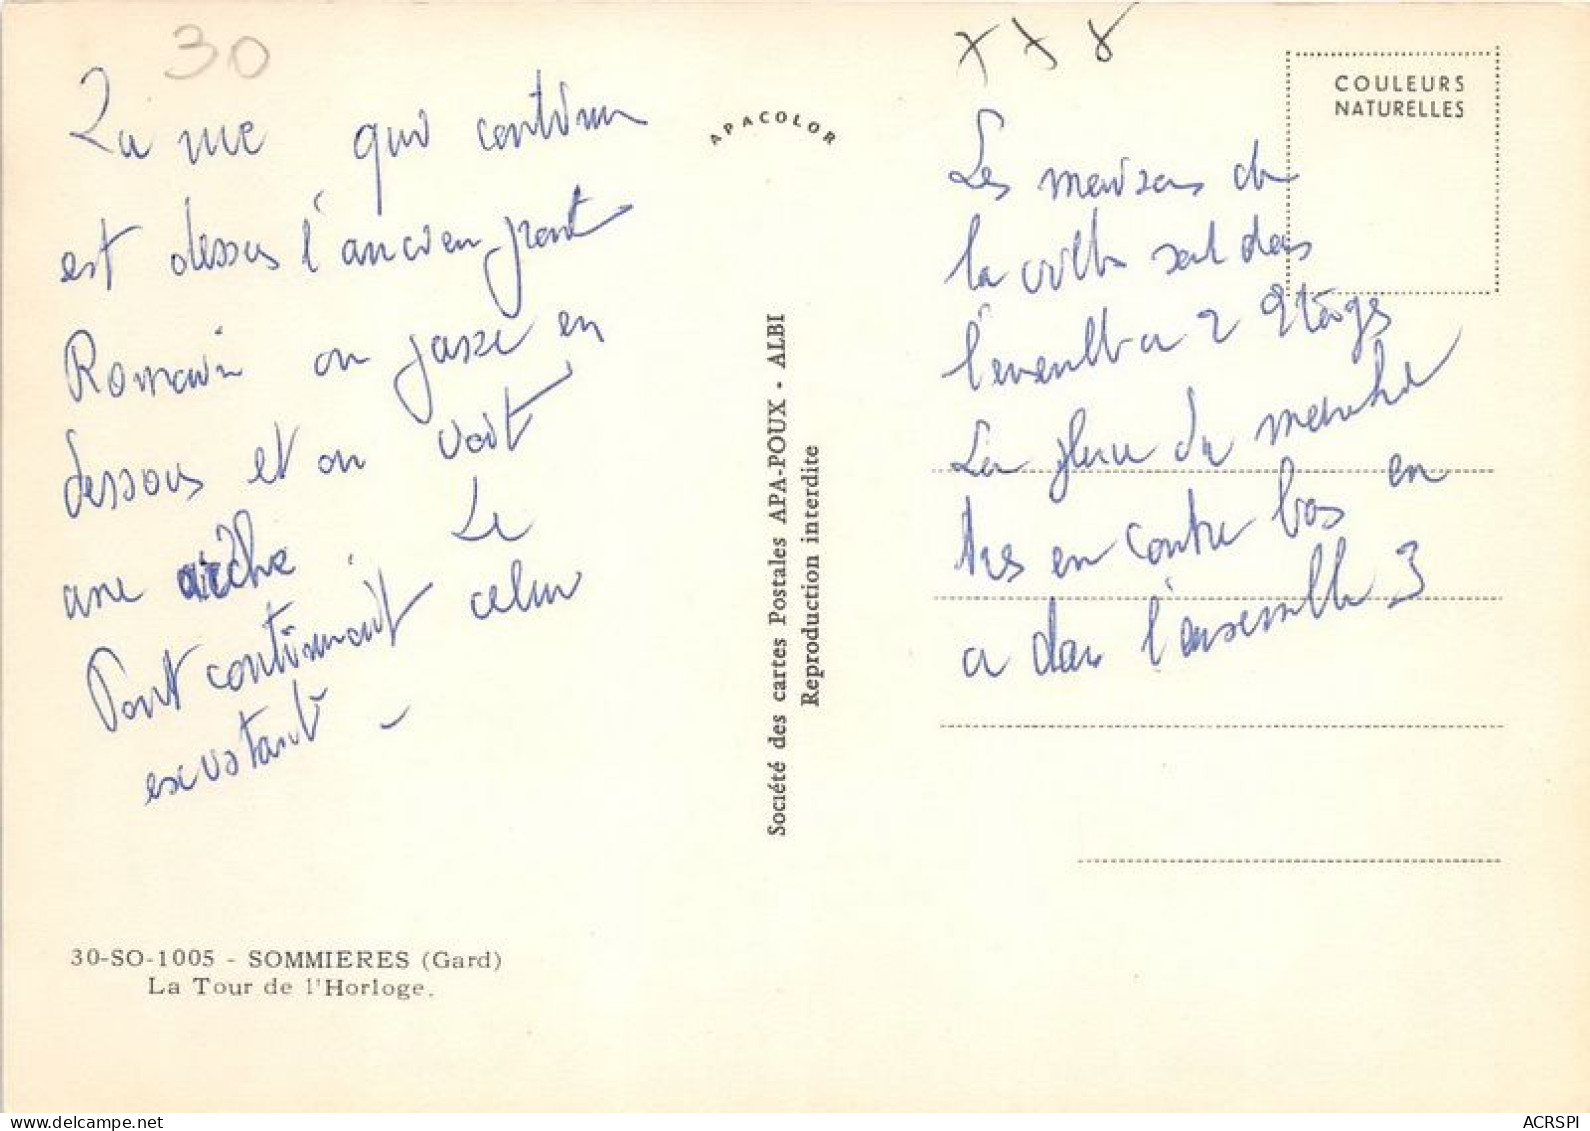 30
La rue qui continu
est dessus l'ancien pont
Romain on passe en
dessous et on voit
une arche. Le
Pont continuait celui
existant -
30-SO-1005 - SOMMIERES (Gard)
La Tour de l'Horloge.
APACOLOR
Société des cartes Postales APA-POUX - ALBI
Reproduction interdite
COULEURS
NATURELLES
Les maisons de
la ville sont dans
l'ensemble a 2 etages
La place du marché
tres en contre bas en
a dans l'ensemble 3
ACRSPI